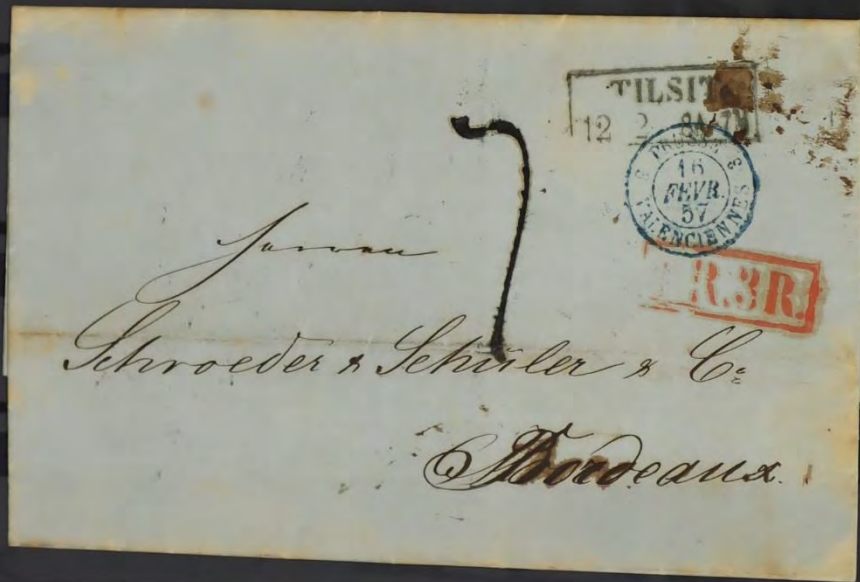 TILSIT
12 2
PRUSSE
3 3
16
FEVR.
57
VALENCIENNES
7
R.3R.
Herren
Schroeder & Schüler & Co
Bordeaux.